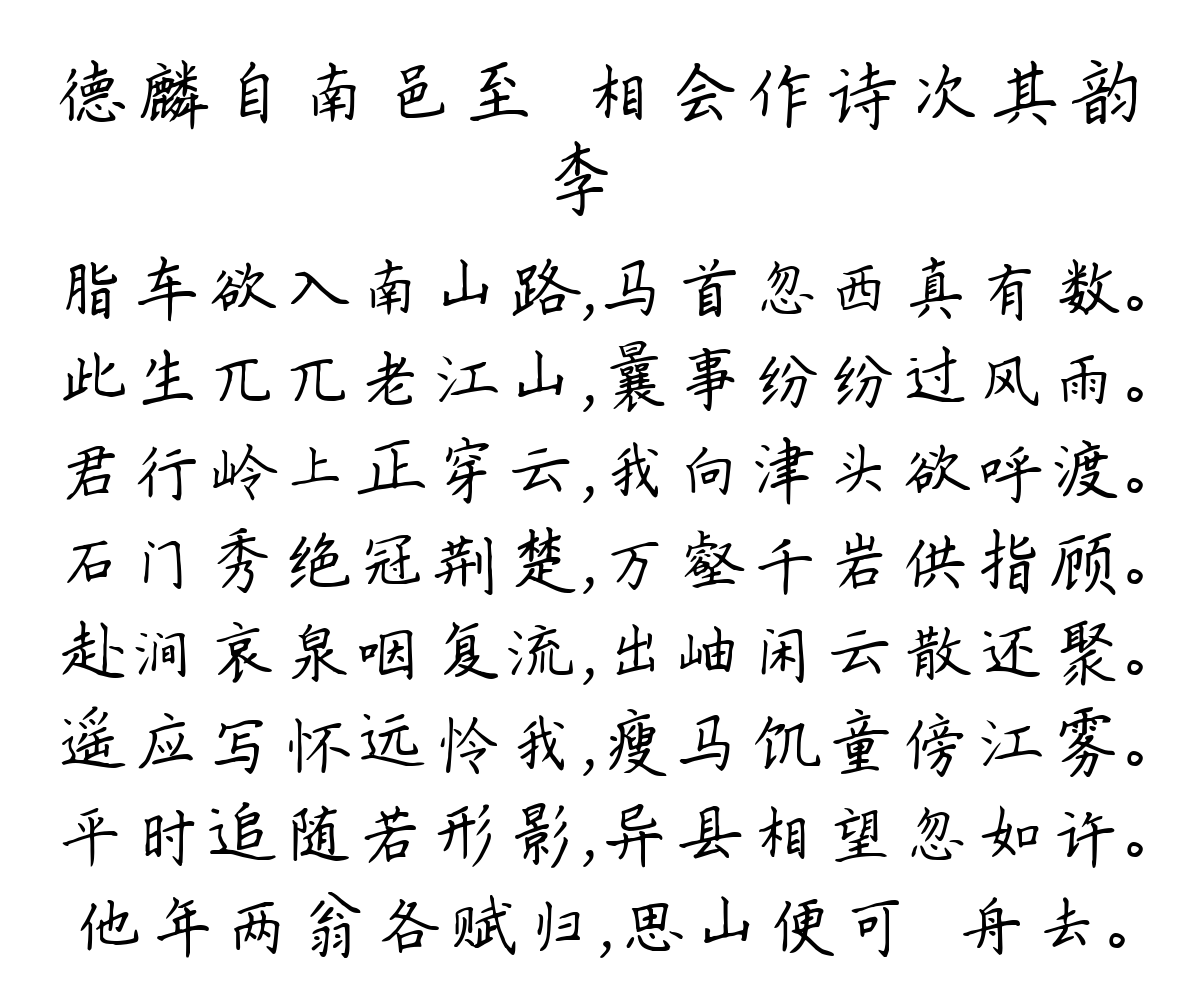 德麟自南邑至 相会作诗次其韵
李
脂车欲入南山路,马首忽西真有数。
此生兀兀老江山,曩事纷纷过风雨。
君行岭上正穿云,我向津头欲呼渡。
石门秀绝冠荆楚,万壑千岩供指顾。
赴涧哀泉咽复流,出岫闲云散还聚。
遥应写怀远怜我,瘦马饥童傍江雾。
平时追随若形影,异县相望忽如许。
他年两翁各赋归,思山便可 舟去。